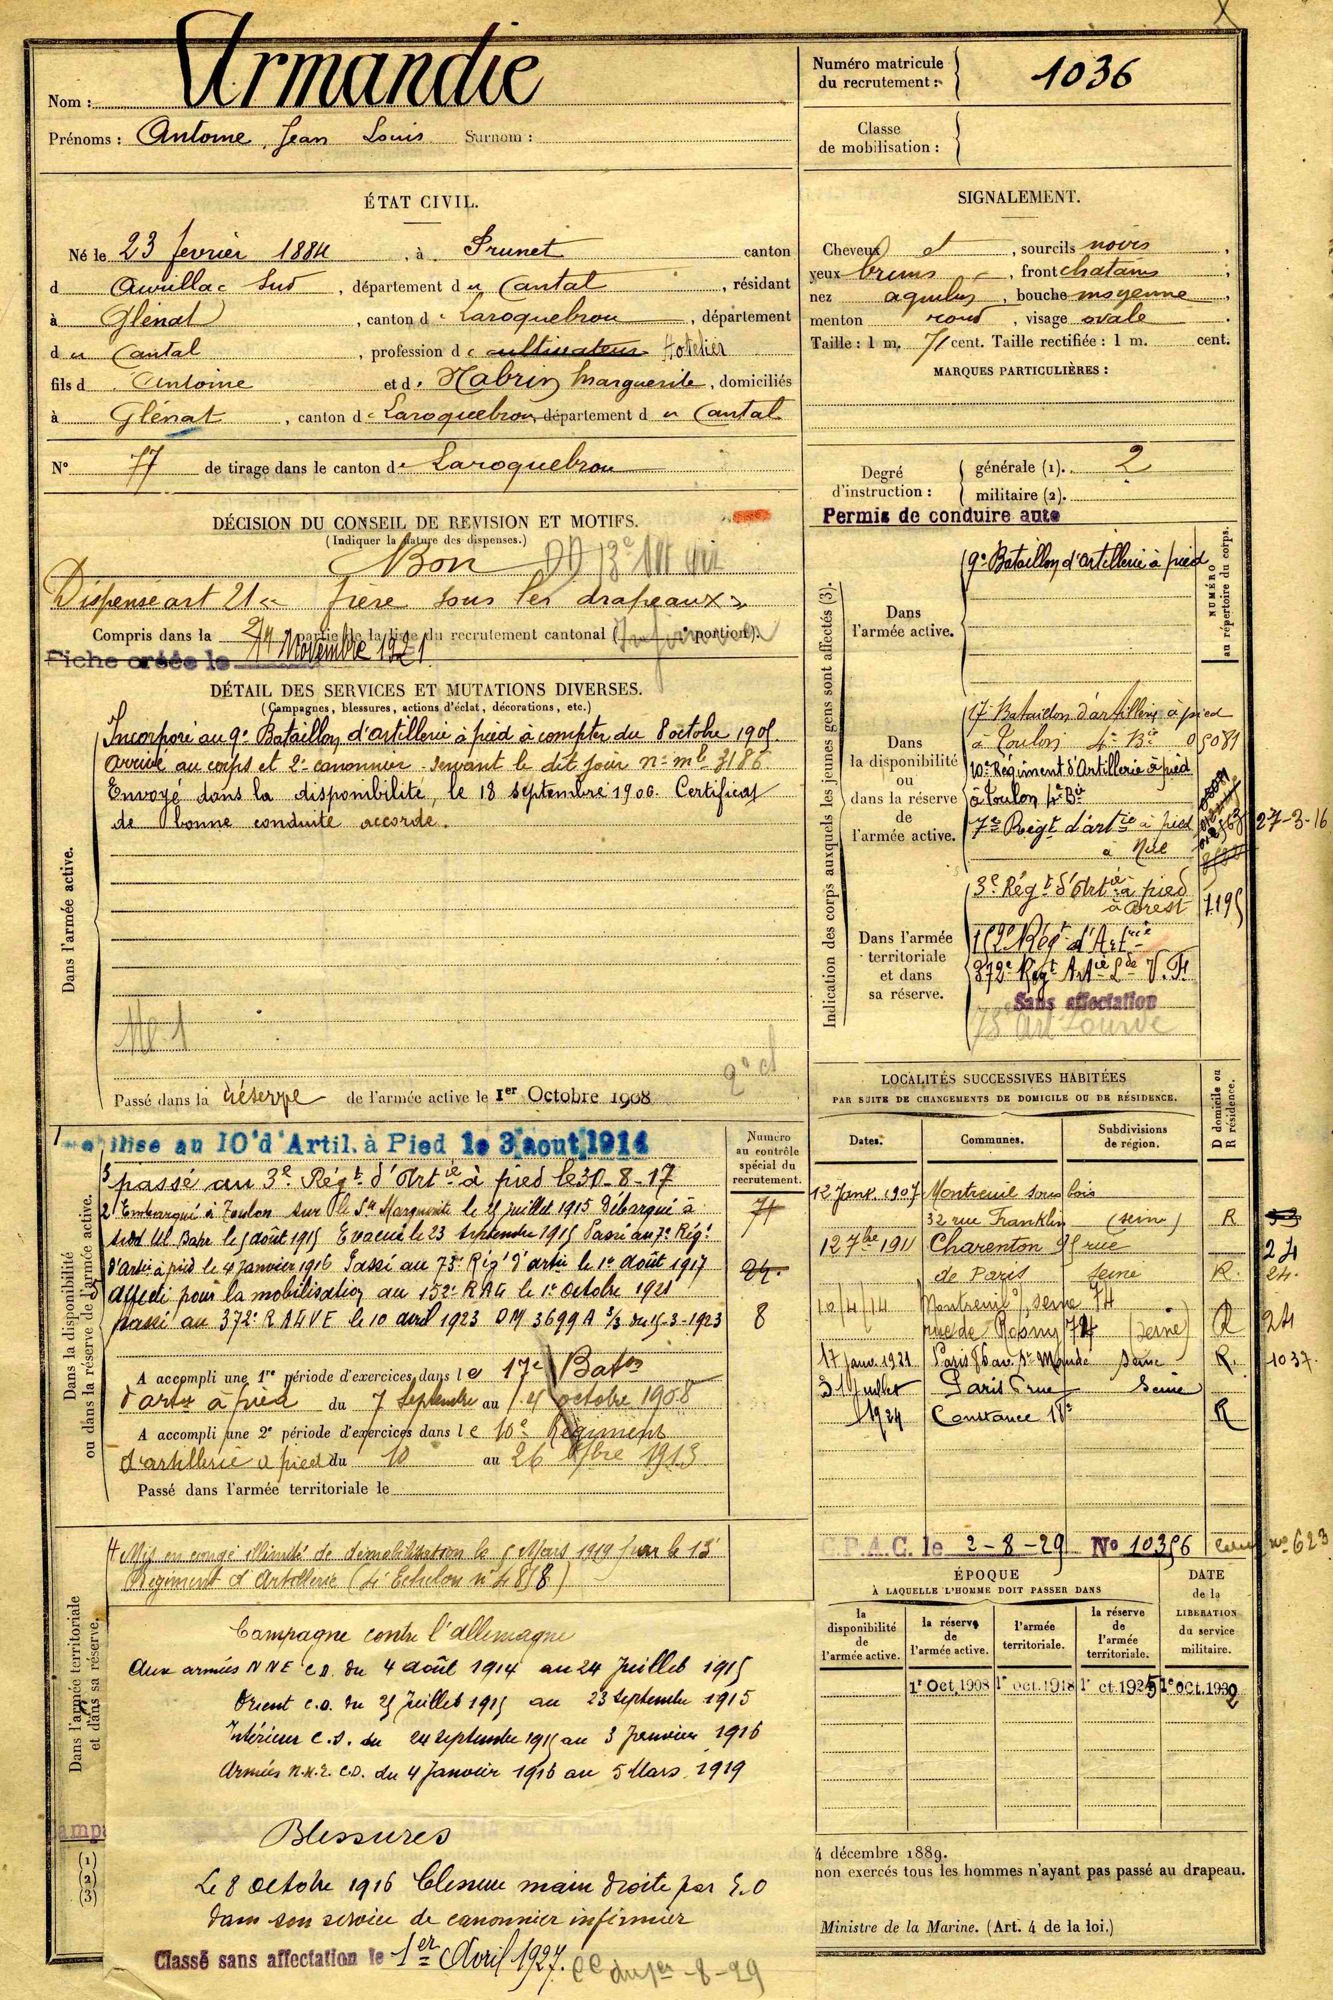 Nom : Urmandie
Prénoms : Antoine, Jean Louis Surnom :
Numéro matricule du recrutement : 1036
Classe de mobilisation :
ÉTAT CIVIL.
Né le 23 fevrier 1884, à Prunet canton
d Aurillac Sud, département du Cantal, résidant
à Glénat, canton de Laroquebrou, département
du Cantal, profession de cultivateur Hotelier
fils d Antoine et de Nabrin Marguerite, domiciliés
à Glénat, canton de Laroquebrou, département du Cantal
N° 77 de tirage dans le canton de Laroquebrou
SIGNALEMENT.
Cheveux et, sourcils noirs,
yeux bruns, front chatains,
nez aquilin, bouche moyenne,
menton rond, visage ovale.
Taille : 1 m. 71 cent. Taille rectifiée : 1 m. cent.
MARQUES PARTICULIÈRES :
Degré d'instruction : générale (1). 2
militaire (2).
Permis de conduire auto
DÉCISION DU CONSEIL DE REVISION ET MOTIFS.
(Indiquer la nature des dispenses.)
Bon
Dispensé art 21 « frère sous les drapeaux »
Compris dans la partie de la liste du recrutement cantonal ( portion).
Fiche créée le 24 Novembre 1921
DÉTAIL DES SERVICES ET MUTATIONS DIVERSES.
(Campagnes, blessures, actions d'éclat, décorations, etc.)
Dans l'armée active.
Incorporé au 9e Bataillon d'artillerie à pied à compter du 8 octobre 1905.
Arrivé au corps et 2e canonnier servant le dit jour n° mle 3186.
Envoyé dans la disponibilité, le 18 Septembre 1906. Certificat
de bonne conduite accordé.
Me. 1
2e cl
Passé dans la réserve de l'armée active le 1er Octobre 1908
Indication des corps auxquels les jeunes gens sont affectés (3).
NUMÉRO au répertoire du corps.
Dans l'armée active.
9e Bataillon d'artillerie à pied
Dans la disponibilité ou dans la réserve de l'armée active.
17e Bataillon d'artillerie à pied
à Toulon 4e Bie 05081
10e Régiment d'Artillerie à pied
à Toulon 4e Bie
7e Régt d'artie à pied 27-3-16
à Nice
Dans l'armée territoriale et dans sa réserve.
3e Régt d'Artie à pied
à Brest 1195
152e Régt d'Artrie
372e Régt Artie Lde V.F.
Sans affectation
73e Art Lourde
Dans la disponibilité ou dans la réserve de l'armée active.
Numéro au contrôle spécial du recrutement.
1 mobilisé au 10e d'Artil. à Pied le 3 août 1914
3 passé au 3e Régt d'Artie à pied le 31-8-17
2 Embarqué à Toulon sur le Ste Marguerite le 25 juillet 1915 Débarqué à 71
Sidi Ul Bahr le 5 août 1915 Evacué le 23 septembre 1915 Passé au 7e Régt
d'Artie à pied le 4 janvier 1916 Passé au 73e Régt d'artie le 1er août 1917 24.
Affecté pour la mobilisation au 152e RAG le 1er octobre 1921
passé au 372e RALVF le 10 avril 1923 DM 3699A 3/3 du 15-3-1923 8
A accompli une 1re période d'exercices dans le 17e Baton
d'artie à pied du 7 Septembre au 4 octobre 1908
A accompli une 2e période d'exercices dans le 10e Régiment
d'artillerie à pied du 10 au 26 1913
Passé dans l'armée territoriale le
LOCALITÉS SUCCESSIVES HABITÉES
PAR SUITE DE CHANGEMENTS DE DOMICILE OU DE RÉSIDENCE.
Dates. Communes. Subdivisions de région. D domicile ou R résidence.
12 Janv. 1907 Montreuil sous bois
32 rue Franklin (seine) R
12 7bre 1911 Charenton 95 rue 24
de Paris Seine R. 24.
10/4/14 Montreuil s/ seine 74
rue de Rosny 74 (Seine) R 24
17 janv. 1921 Paris 7 bav. St Mandé Seine R. 1037.
31 Juillet Paris rue Seine
1924 Constance 18e R
C.P.A.C. le 2-8-29 N° 10356 n° 623
Dans l'armée territoriale et dans sa réserve.
4 Mis en congé illimité de démobilisation le 5 Mars 1919 par le 13e
Régiment d'Artillerie (4e Echelon n° 4858)
Campagne contre l'allemagne
Aux armées NNE C.D. du 4 août 1914 au 24 Juillet 1915
Orient C.D. du 25 Juillet 1915 au 23 Septembre 1915
Intérieur C.S. du 24 septembre 1915 au 3 Janvier 1916
Armées N.N.E. C.D. du 4 Janvier 1916 au 5 Mars 1919
Blessures
Le 8 octobre 1916 blessure main droite par E.O
dans son service de canonnier infirmier
Classé sans affectation le 1er Avril 1927.
-8-29
(1)
(2)
(3)
ÉPOQUE
À LAQUELLE L'HOMME DOIT PASSER DANS
la disponibilité de l'armée active.
la réserve de l'armée active.
l'armée territoriale.
la réserve de l'armée territoriale.
DATE de la LIBÉRATION du service militaire.
1r Oct. 1908 1r oct. 1918 1r ct. 1925 1er oct. 1932
4 décembre 1889.
non exercés tous les hommes n'ayant pas passé au drapeau.
Ministre de la Marine. (Art. 4 de la loi.)